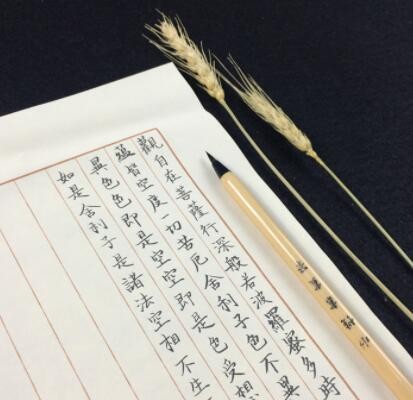 觀自在菩薩行深般若波羅蜜多時
蘊皆空度一切苦厄舍利子色不異
異色色即是空空即是色受想
如是舍利子是諸法空相不生